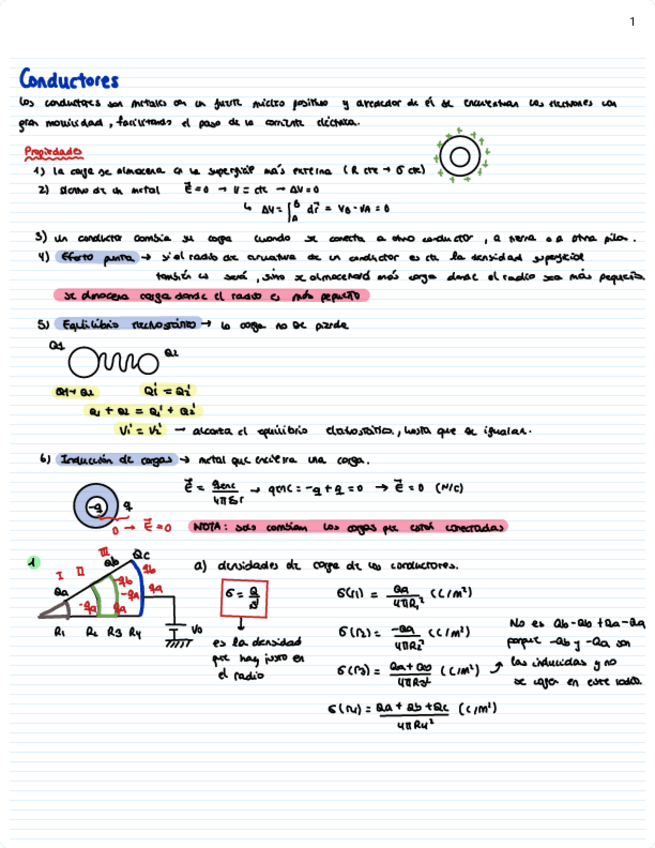 1
Conductores
Los conductores son metales con un fuerte núcleo positivo y alrededor de él se encuentran los electrones con
gran movilidad, facilitando el paso de la corriente eléctrica.
Propiedades
1) La carga se almacena en la superficie más externa (R cte → σ cte)
2) dentro de un metal E⃗=0 → V = cte → ΔV=0
↳ ΔV = ∫_A^B dr⃗ = VB - VA = 0
3) un conductor cambia su carga cuando se conecta a otro conductor, a tierra o a otra pila.
4) Efecto punta → si el radio de curvatura de un conductor es cte la densidad superficial
también lo será, sino se almacenará más carga donde el radio sea más pequeño
se almacena carga donde el radio es más pequeño
5) Equilibrio electrostático → la carga no se pierde
Q1 Q2
Q1 → Q2 Q1' = Q2'
Q1 + Q2 = Q1' + Q2'
V1' = V2' → alcanza el equilibrio electrostático, hasta que se igualan.
6) Inducción de cargas → metal que encierra una carga.
E⃗ = qenc/4πεr → qenc = -q + q = 0 → E⃗ = 0 (N/C)
-q q
0 → E⃗ = 0
NOTA: solo cambian las cargas que están conectadas
1
I II III Qa Qb Qc
-Qa Qa Qb -Qb -Qa Qb Qa
R1 R2 R3 R4 V0
a) densidades de carga de los conductores.
σ = Q/S
es la densidad
que hay justo en
el radio
σ(r1) = Qa/4πR1² (C/m²)
σ(r2) = -Qa/4πR2² (C/m²)
σ(r3) = Qa + Qb/4πR3² (C/m²)
σ(r4) = Qa + Qb + Qc/4πR4² (C/m²)
No es Qb - Qb + Qa - Qa
porque -Qb y -Qa son
las inducidas y no
se cogen en este radio.